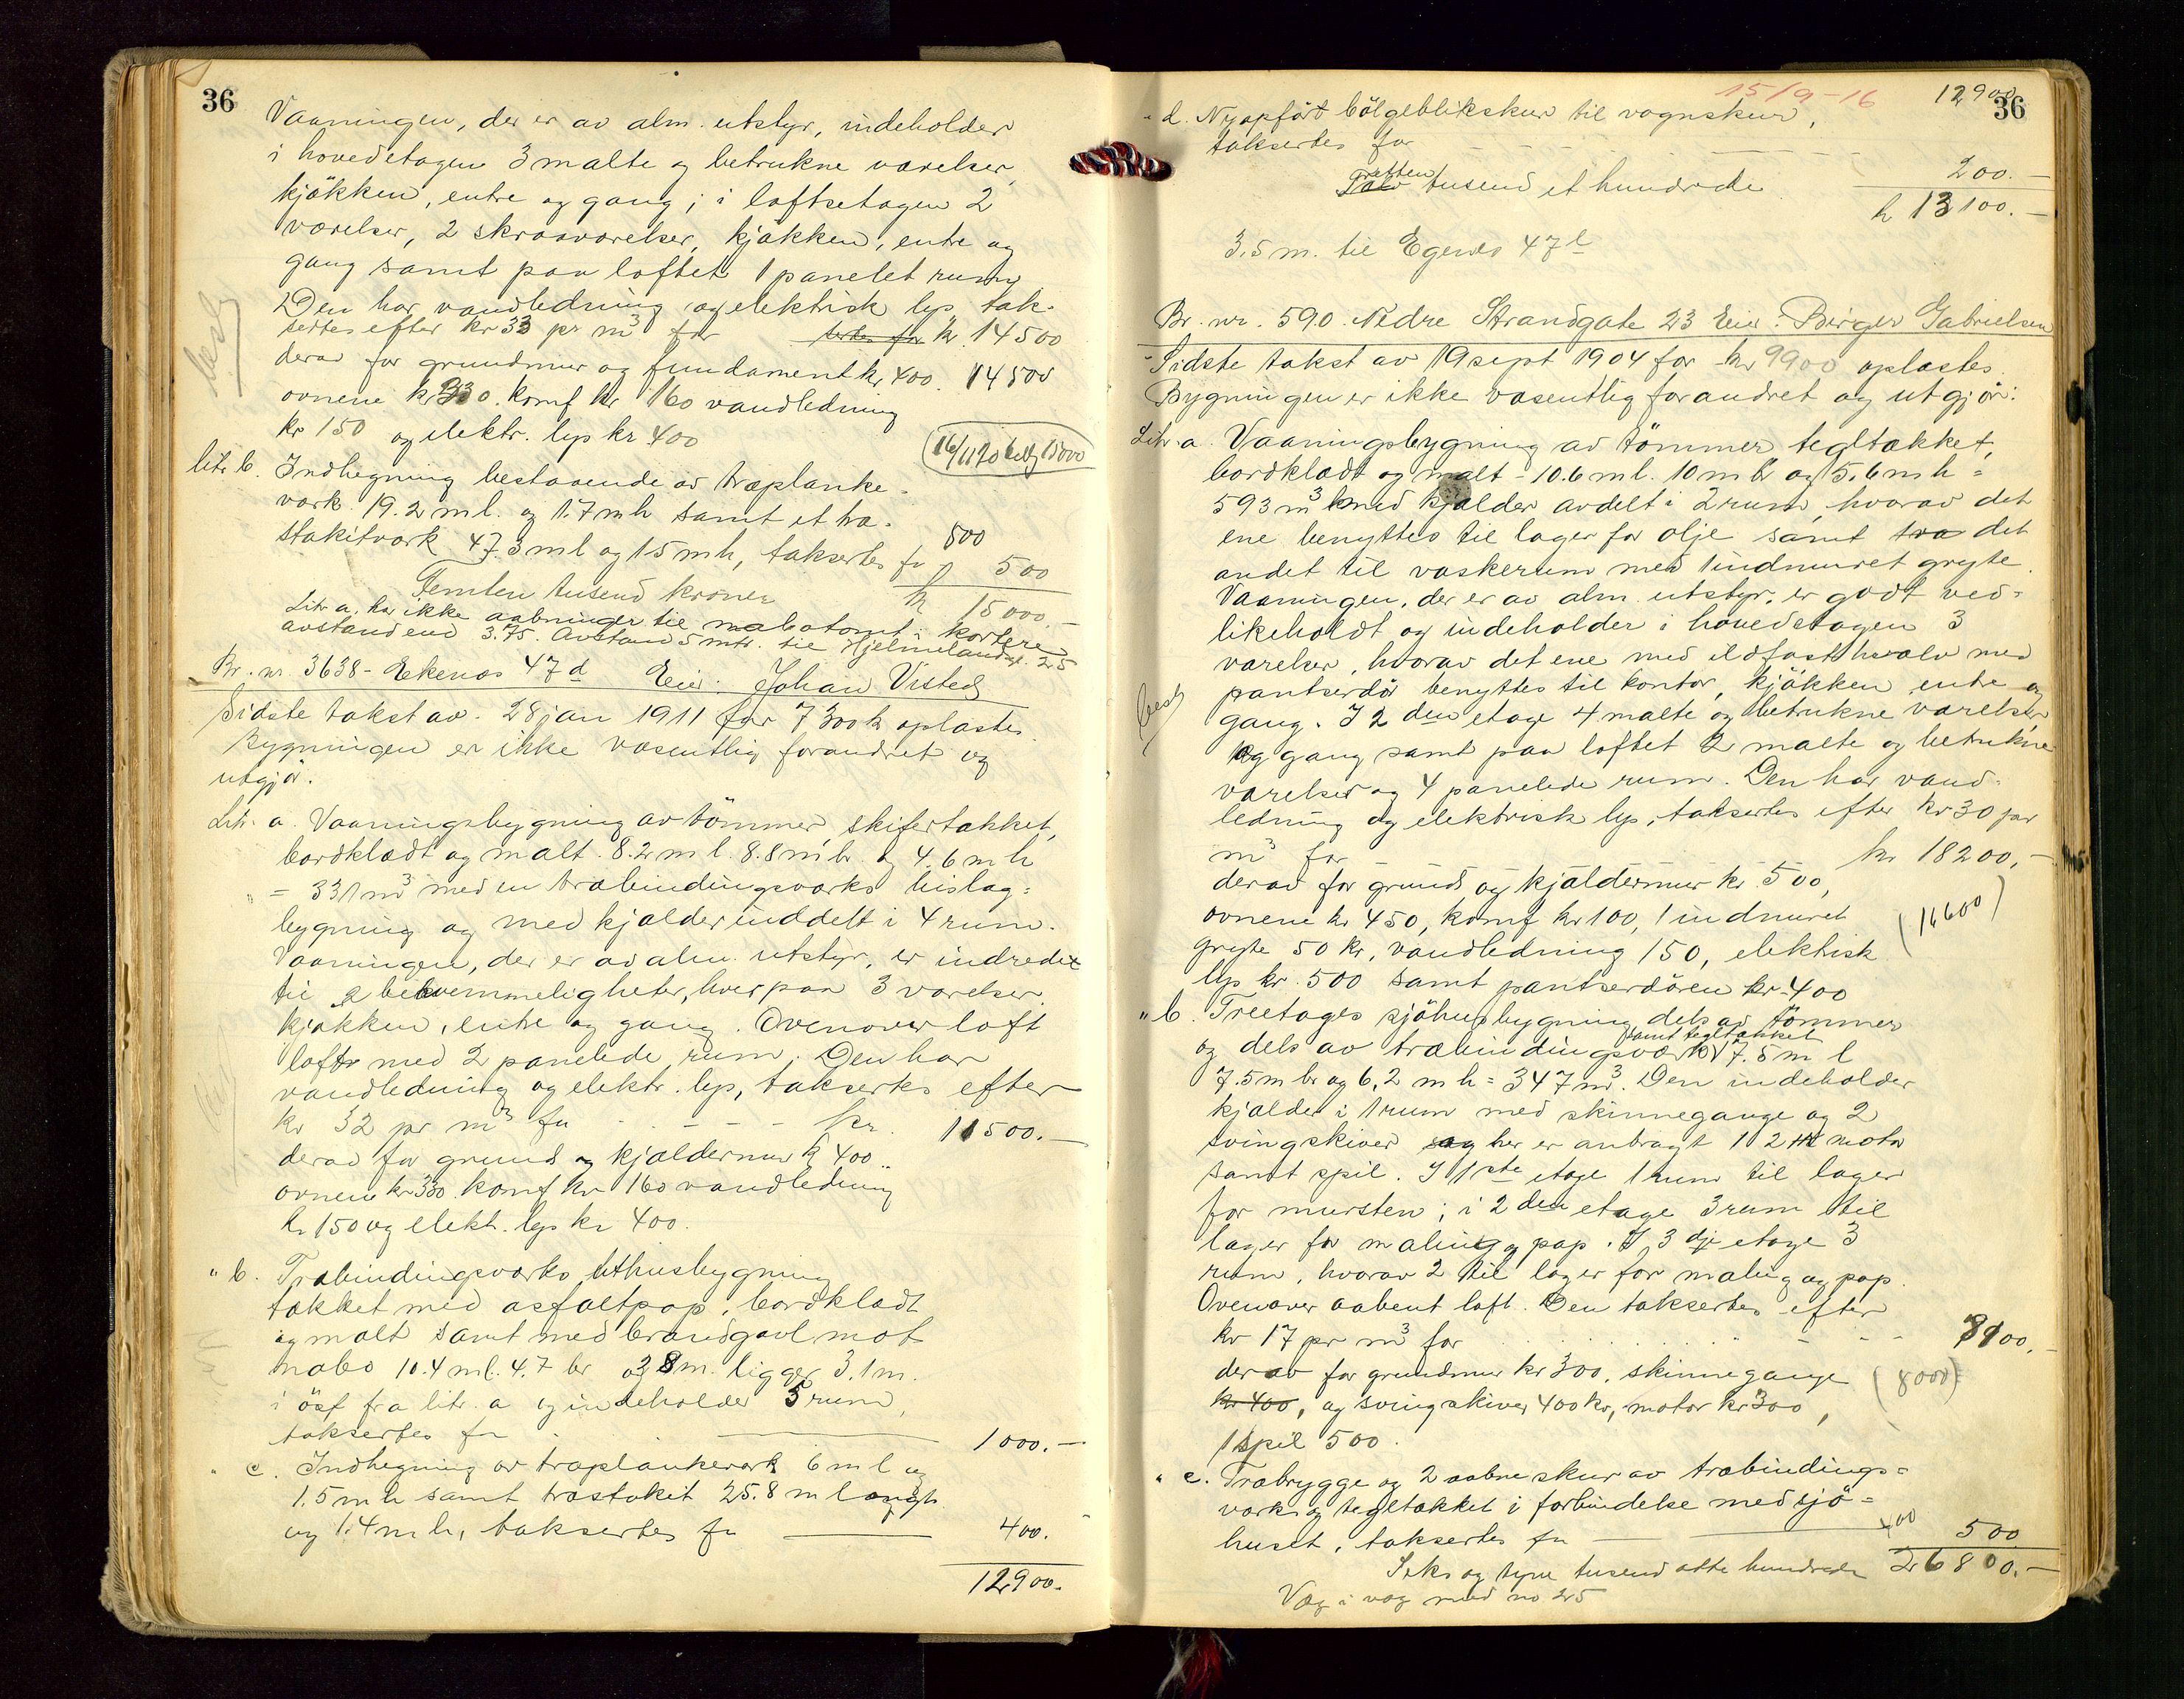 36
Vaaningen, der er av alm. utstyr, indeholder
i hovedetagen 3 malte og betrukne værelser,
kjøkken, entre og gang; i loftsetagen 2
værelser, 2 skraaværelser, kjøkken, entre og
gang samt paa loftet 1 panelet rum
Den har vandledning og elektrisk lys, tak-
sertes efter kr 33 pr m³ for sertes for kr. 14500
derav for grundmur og fundament kr 400. 14500
ovnene kr 330. komf kr 160 vandledning
kr 150 og elektr. lys kr 400
litr b. Indhegning bestaaende av træplanke-
værk 19.2 m l. og 1.7 m h samt et træ-
stakitværk 47.3 m l og 1.5 m h, taksertes for 500
500
Femten tusend kroner kr 15000.-
Litr a. har ikke aabninger til nabotomt i kortere
avstand end 3.75. Avstand 5 mtr. til Hjelmelandsgt. 25
Br. nr. 3638 - Ekenæs 47 d Eier: Johan Visted
Sidste takst av 28 jan 1911 for 7300 kr oplæstes.
Bygningen er ikke væsentlig forandret og
utgjør:
Litr. a. Vaaningsbygning av tømmer, skifertækket,
bordklædt og malt. 8.2 m l. 8.8 m br. og 4.6 m h
= 331 m³ med en træbindingsværks bislag-
bygning og med kjælder inddelt i 4 rum.
Vaaningen, der er av alm. utstyr, er indredet
til 2 bekvemmeligheter, hver paa 3 værelser.
kjøkken, entre og gang. Ovenover loft
lofter med 2 panelede rum. Den har
vandledning og elektr. lys, taksertes efter
kr 32 pr m³ for - - - kr. 11500.-
derav for grund og kjældermur kr 400..
ovnene kr 330. komf kr 160 vandledning
kr 150 og elektr. lys kr 400.
" b. Træbindingsværks uthusbygning
tækket med asfaltpap, bordklædt
og malt samt med brandgavl mot
nabo 10.4 m l. 4.7 br og 2.8 m. ligger 3.1 m.
i øst fra litr. a og indeholder 5 rum,
taksertes for 1000.-
" c. Indhegning av træplankeværk 6 m l og
1.5 m h samt træstakit 25.8 m langt
og 1.4 m h, taksertes for 400.-
12900.
15/9-16
12900
36
" d. Nyopført bølgeblikskur til vognskur,
taksertes for 200.-
Tolv tretten tusend et hundrede kr 13100.-
3.5 m. til Egenes 47 l
Br. nr. 590. Nedre Strandgate 23 Eier: Birger Gabrielsen
Sidste takst av 19 sept 1904 for kr 9900 oplæstes.
Bygningen er ikke væsentlig forandret og utgjør:
Litr. a. Vaaningsbygning av tømmer, tegltækket,
bordklædt og malt - 10.6 m l. 10 m br og 5.6 m h =
593 m³ med kjælder avdelt i 2 rum, hvorav det
ene benyttes til lager for olje samt det
andet til vaskerum med 1 indmuret gryte.
Vaaningen, der er av alm. utstyr, er godt ved-
likeholdt og indeholder i hovedetagen 3
værelser, hvorav det ene med ildfast hvælv med
pantserdør benyttes til kontor, kjøkken, entre og
gang. I 2 den etage 4 malte og betrukne værelser
og gang samt paa loftet 2 malte og betrukne
værelser og 4 panelede rum. Den har vand-
ledning og elektrisk lys, taksertes efter kr 30 pr
m³ for kr 18200.-
derav for grund og kjældermur kr 500,
ovnene kr 450, komf kr 100, 1 indmuret
(16600)
gryte 50 kr, vandledning 150, elektrisk
lys kr. 500 samt pantserdøren kr. 400
" b. Treetages sjøhusbygning dels av tømmer
og dels av træbindingsværk samt tegltækket 7.5 m l
7.5 m br og 6.2 m h = 347 m³. Den indeholder
kjælder i 1 rum med skinnegange og 2
svingskiver og her er anbragt 1 2 HK motor
samt spil. I 1ste etage 1 rum til lager
for mursten; i 2 den etage 3 rum til
lager for maling og pap. I 3 dje etage 3
rum, hvorav 2 til lager for maling og pap.
Ovenover aabent loft. Den taksertes efter
kr 17 pr m³ for 8100.-
derav for grundmur kr 300, skinnegange
(8000)
kr 400, og svingskiver 400 kr, motor kr 300,
1 spil 500.
" c. Træbrygge og 2 aabne skur av træbindings-
værk og tegltækket i forbindelse med sjø-
huset, taksertes for 400 500
Seks og tyve tusend otte hundrede 26800.-
Væg i væg med no 25